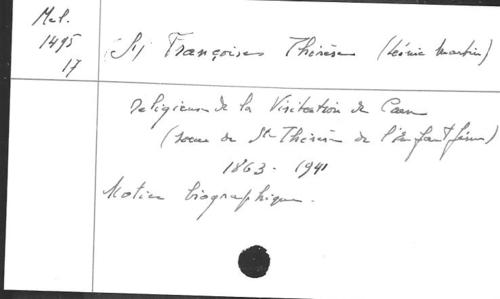 Mel.
1495
17
(S) Françoise Thérèse (Léonie Martin)
Religieuse de la Visitation de Caen
(soeur de Ste Thérèse de l'Enfant Jésus)
1863 - 1941
Notice biographique.